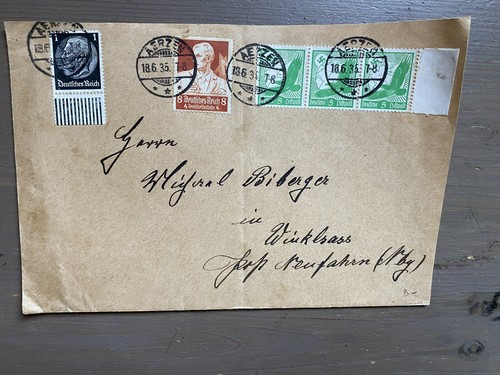 AERZEN
18.6.35. 7-8
1
Deutsches Reich
AERZEN
18.6.35. 7-8
8 Deutsches Reich 8
4 4
AERZEN
18.6.35. 7-8
5 5 5
AERZEN
18.6.35. 7-8
Herrn
Michael Biberger
in
Winklsass
Post Neufahrn (Nby)
8-